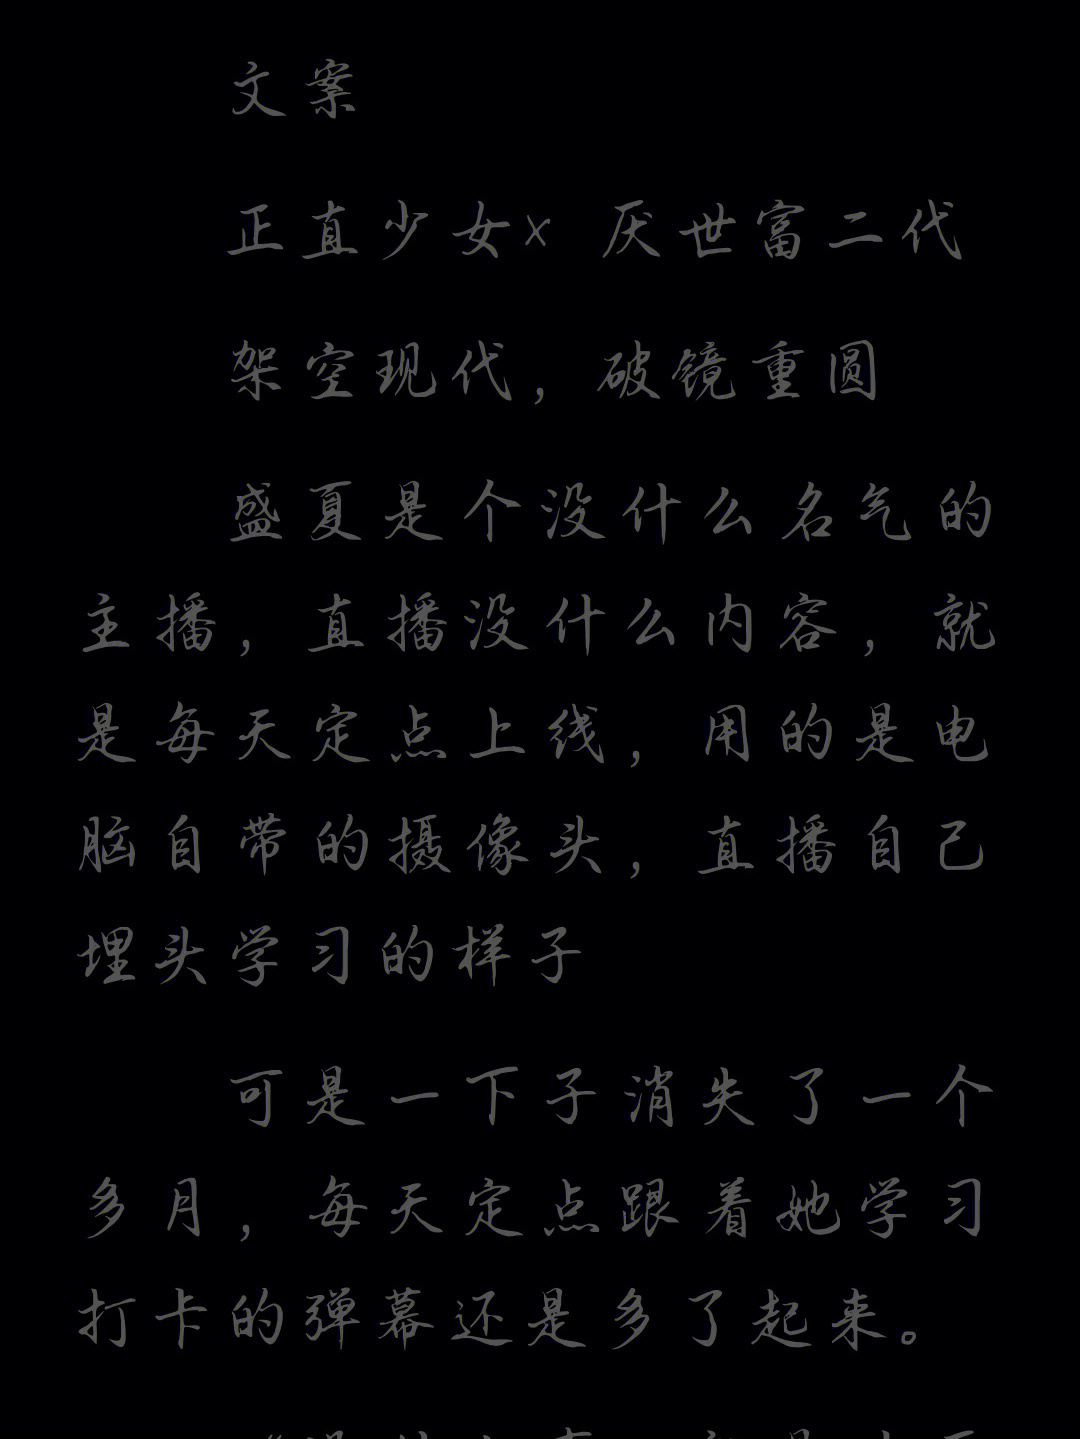 文案
正直少女x 厌世富二代
架空现代，破镜重圆
盛夏是个没什么名气的
主播，直播没什么内容，就
是每天定点上线，用的是电
脑自带的摄像头，直播自己
埋头学习的样子
可是一下子消失了一个
多月，每天定点跟着她学习
打卡的弹幕还是多了起来。